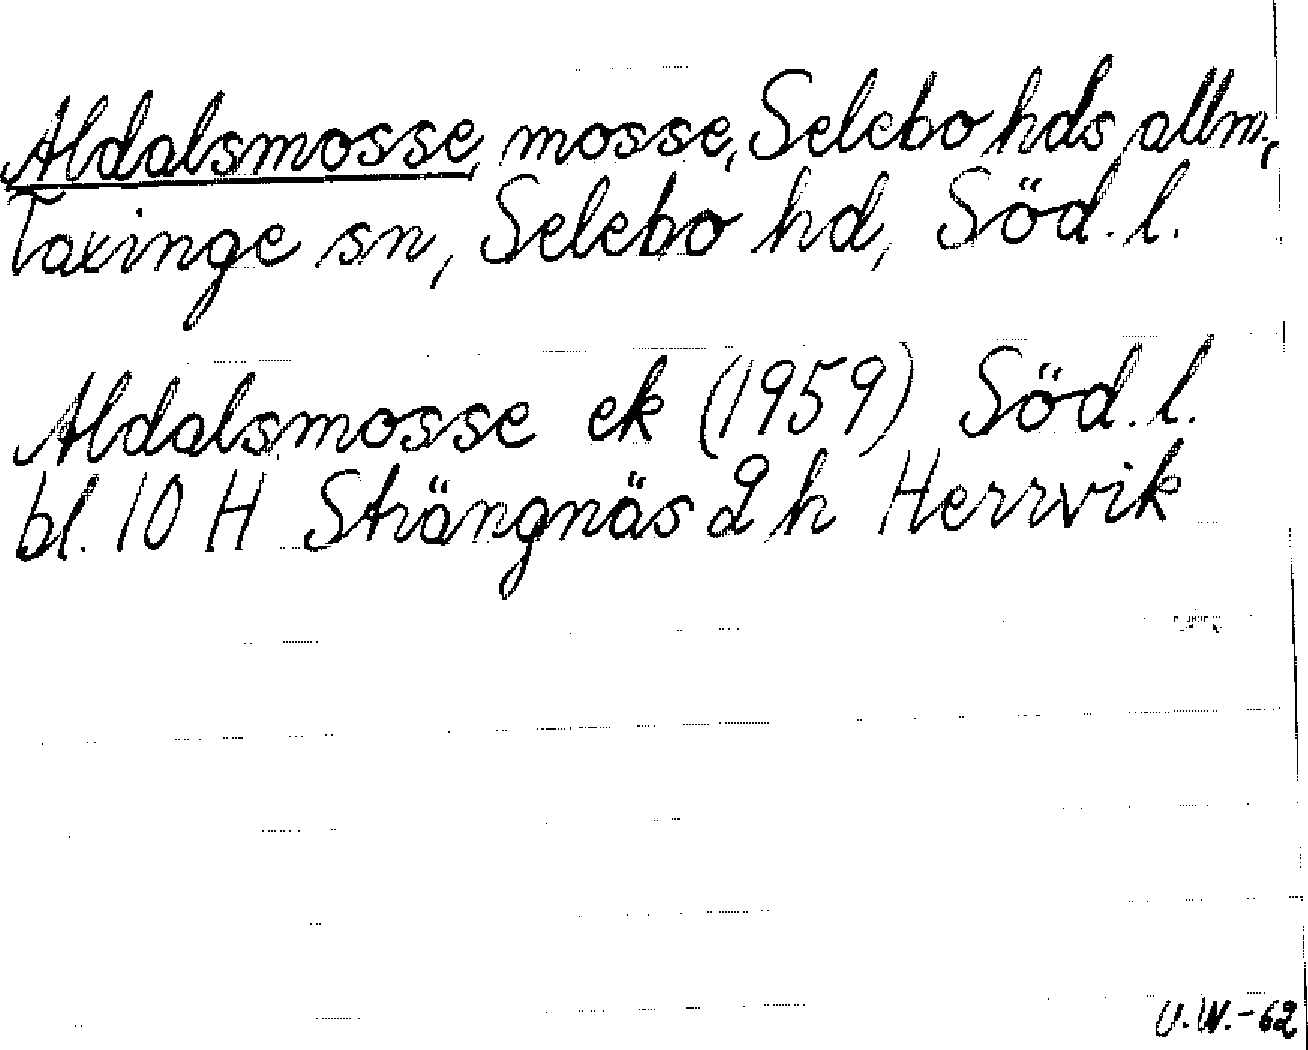 Aldalsmosse, mosse, Selebo hds allm.,
Taxinge sn, Selebo hd, Söd. l.
Aldalsmosse ek (1959) Söd. l.
bl. 10 H Strängnäs 2 h Herrvik
U.W.-62